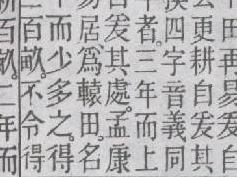 田再易爰自
更耕自爰其
四字音義同
者三年而上
爰其處孟康
居為轅田名
而少多之得
百畝不令得
百畝二年而